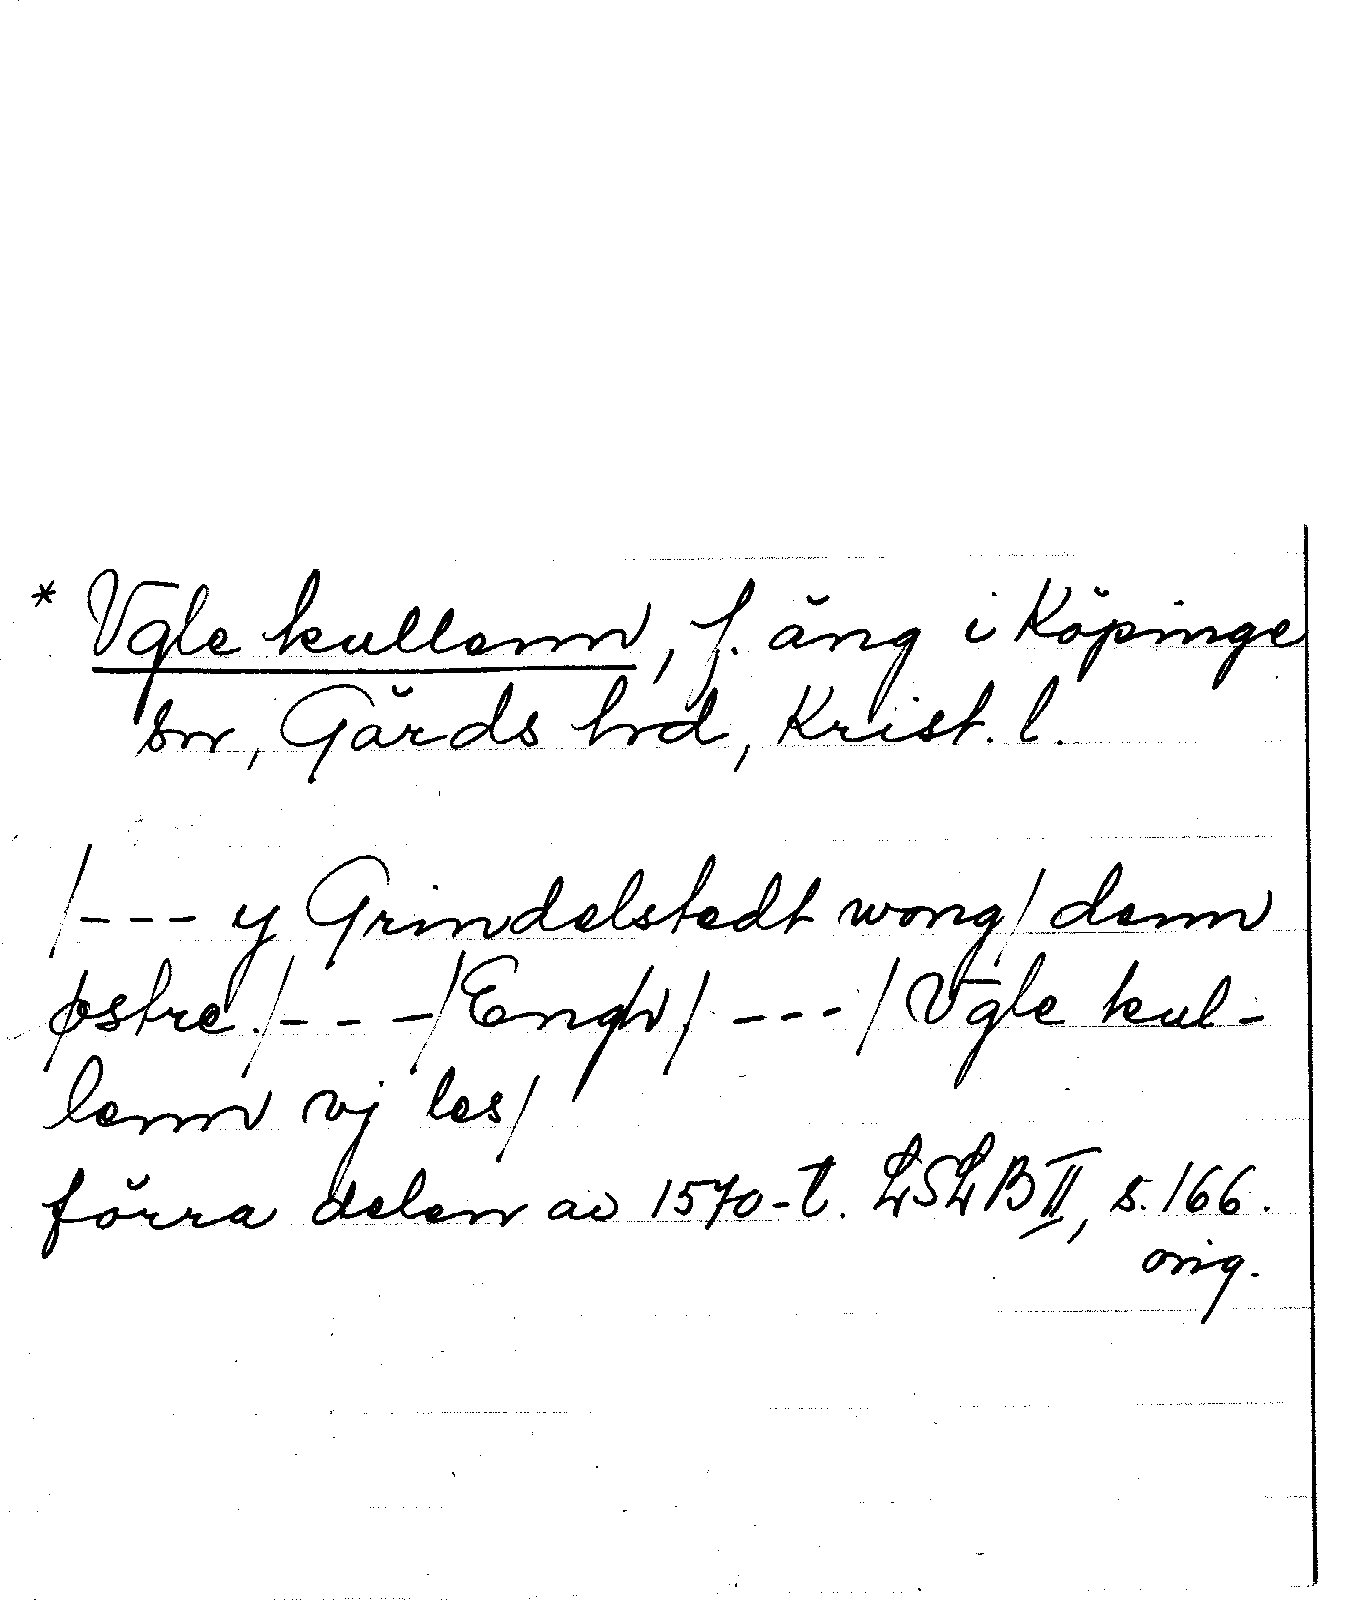 * Vgle kullenn, f. äng i Köpinge
sn, Gärds hd, Krist. l.
/--- y Grindelstedt wong/ denn
østre/---/Engh/---/Vgle kul-
lenn vj les/
förra delen av 1570-t. LSLB II, s. 166.
orig.